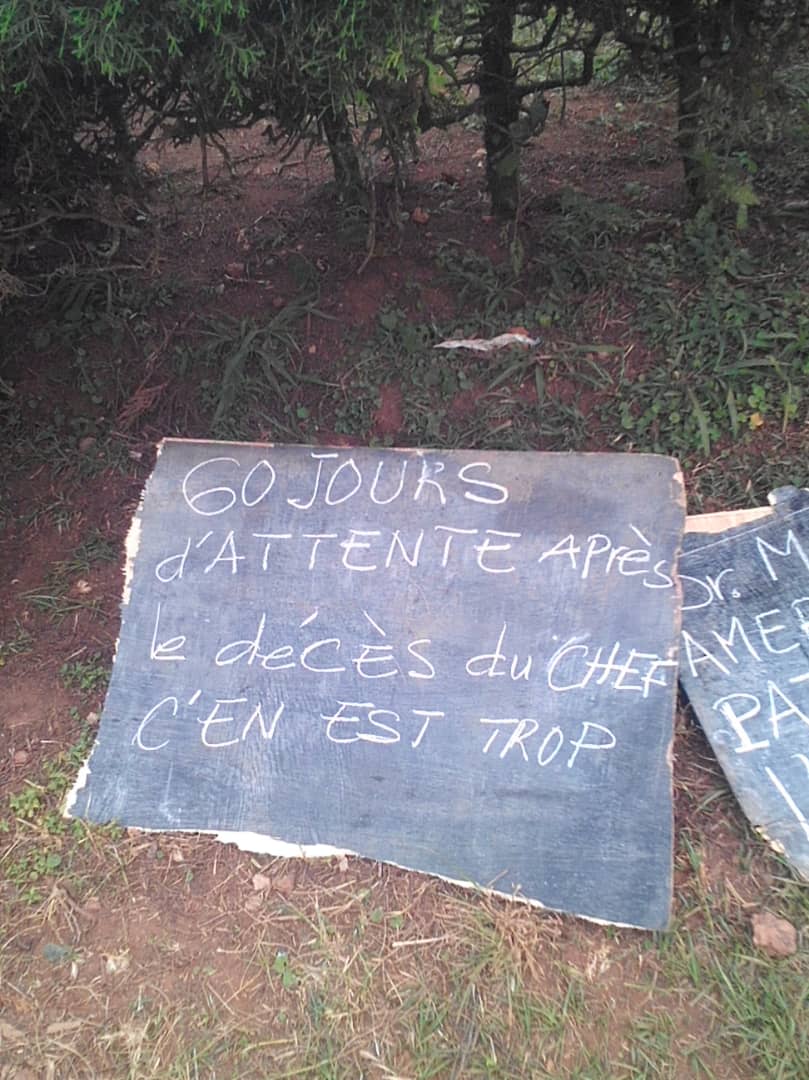 60 JOURS
d'ATTENTE APrès
le décès du CHEF
C'EN EST TROP
Dr. M
AMER
PA